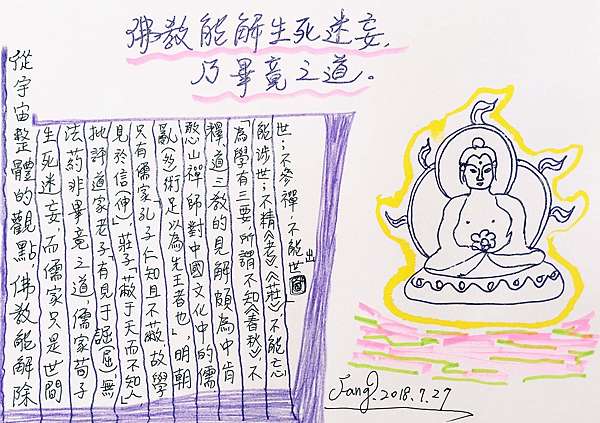 佛教能解生死迷妄,
乃畢竟之道。
從宇宙整體的觀點,佛教能解除
生死迷妄,而儒家只是世間
法葯非畢竟之道,儒家荀子
批評道家老子有見于詘屈,無
見於信(伸)」莊子蔽于天而不知人,
只有儒家孔子仁知且不蔽故學
亂多術足以為先王者也」,明朝
憨山禪師對中國文化中的儒
釋道三教的見解頗為中肯
「為學有三要,所謂不知《春秋》不
能涉世;不精《老》《莊》不能忘
世;不參禪,不能出世
Fang. 2018.7.27